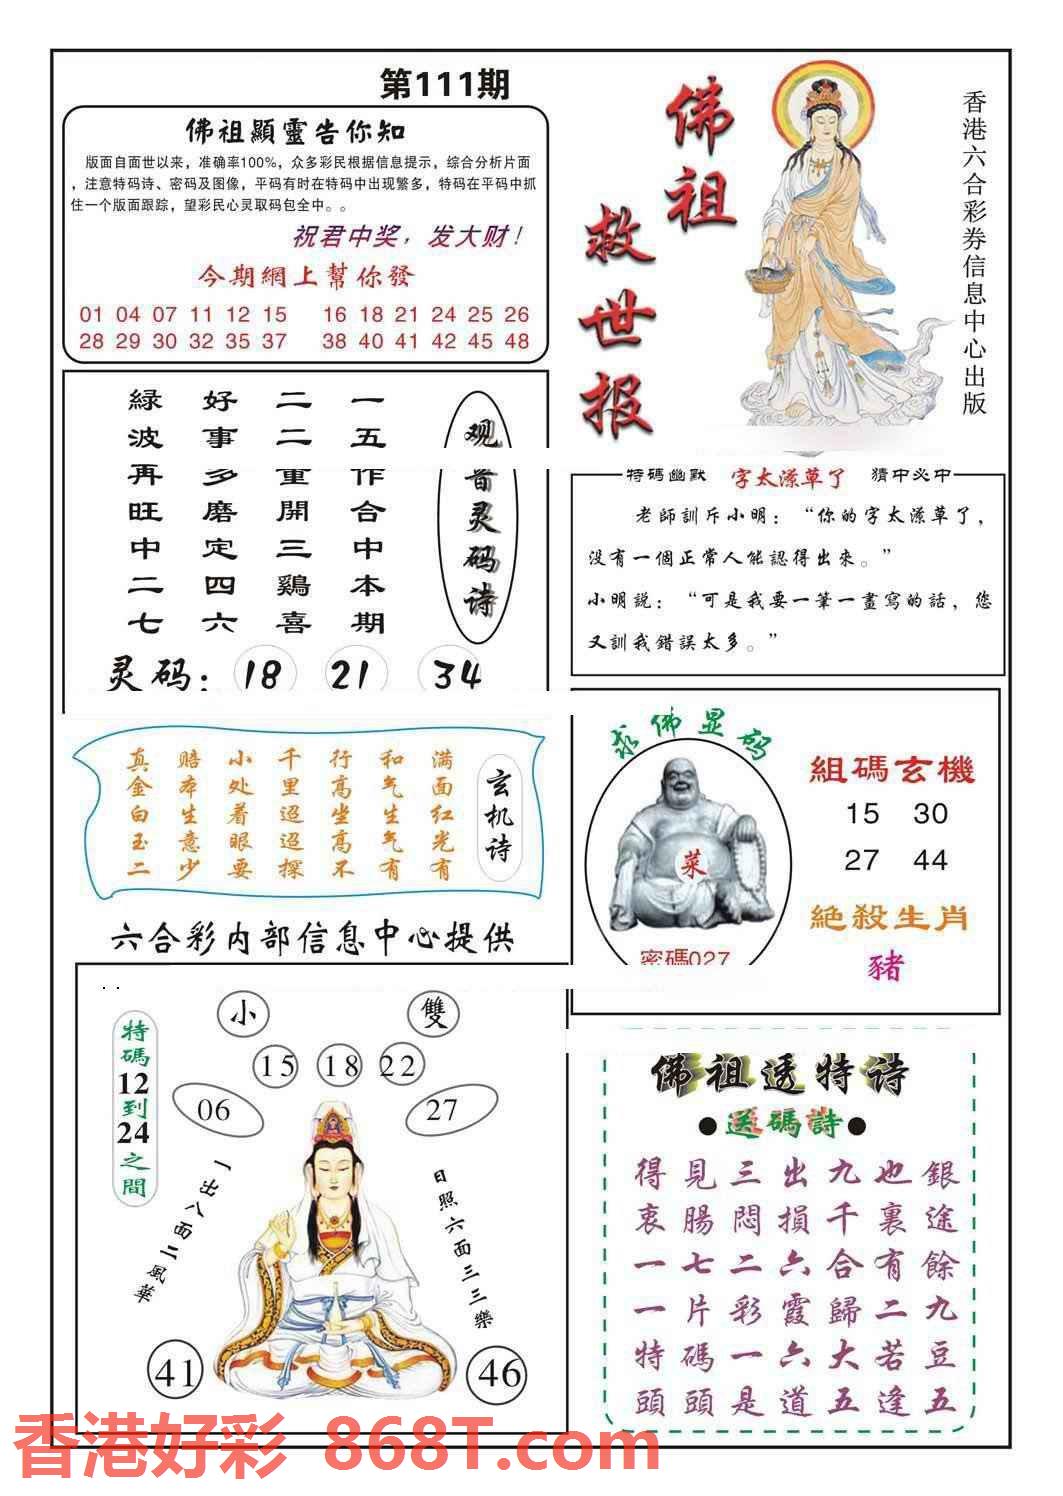 第111期
佛祖顯靈告你知
版面自面世以来，准确率100%，众多彩民根据信息提示，综合分析片面
，注意特码诗、密码及图像，平码有时在特码中出现繁多，特码在平码中抓
住一个版面跟踪，望彩民心灵取码包全中。。
祝君中奖，发大财！
今期網上幫你發
01 04 07 11 12 15 16 18 21 24 25 26
28 29 30 32 35 37 38 40 41 42 45 48
佛祖
救世报
香港六合彩券信息中心出版
观音灵码诗
一五作合中本期
二二重開三鷄喜
好事多磨定四六
緑波再旺中二七
灵码：18 21 34
特碼幽默 字太潦草了 猜中必中
老師訓斥小明：“你的字太潦草了，
没有一個正常人能認得出來。”
小明説：“可是我要一筆一畫寫的話，您
又訓我錯誤太多。”
玄机诗
满面红光有
和气生气有
行高坐高不
千里迢迢探
小处着眼要
赔本生意少
真金白玉二
求佛显码
菜
密碼027
組碼玄機
15 30
27 44
絶殺生肖
豬
六合彩内部信息中心提供
特碼12到24之間
小 雙
15 18 22
06 27
一出八面二風華
日照六面三三樂
41 46
佛祖透特诗
●送碼詩●
得見三出九也銀
衷腸悶損千裏途
一七二六合有餘
一片彩霞歸二九
特碼一六大若豆
頭頭是道五逢五
香港好彩 868T.com